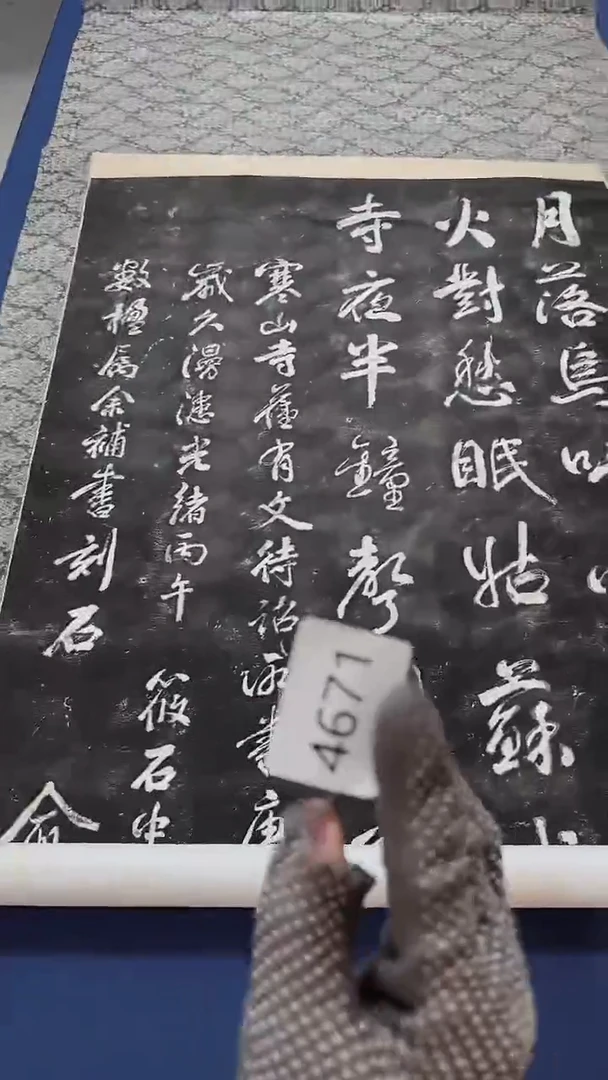 月落烏
火對愁眠姑蘇
寺夜半鐘聲
寒山寺舊有文待詔所書唐
歲久漫漶光緒丙午筱石中
數楹屬余補書刻石
俞
4671